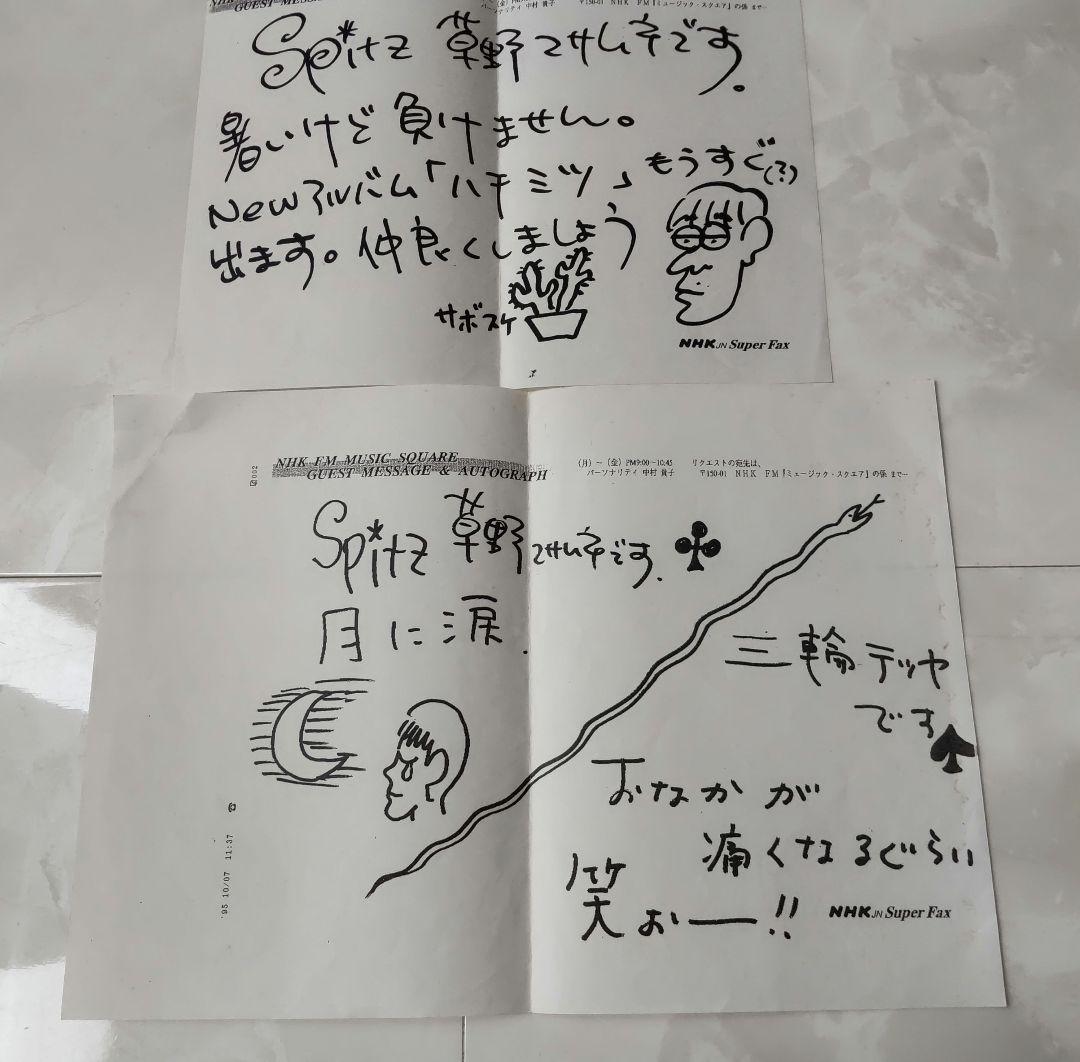 NHK FM MUSIC SQUARE
GUEST MESSAGE
(金)
パーソナリティ 中村 貴子
〒150-01 NHK FM『ミュージック・スクエア』の係 まで…
Spitz 草野マサムネです。
暑いけど 負けません。
Newアルバム「ハチミツ」もうすぐ(?)
出ます。仲良くしましょう
サボスケ
NHK JN Super Fax
002
NHK FM MUSIC SQUARE
GUEST MESSAGE & AUTOGRAPH
(月)～(金)PM9:00～10:45 リクエストの宛先は、
パーソナリティ 中村 貴子 〒150-01 NHK FM『ミュージック・スクエア』の係 まで…
Spitz 草野マサムネです.
月に涙.
三輪テツヤ
です
おなかが
痛くなるぐらい
笑おー!!
'95 10/07 11:37
NHK JN Super Fax